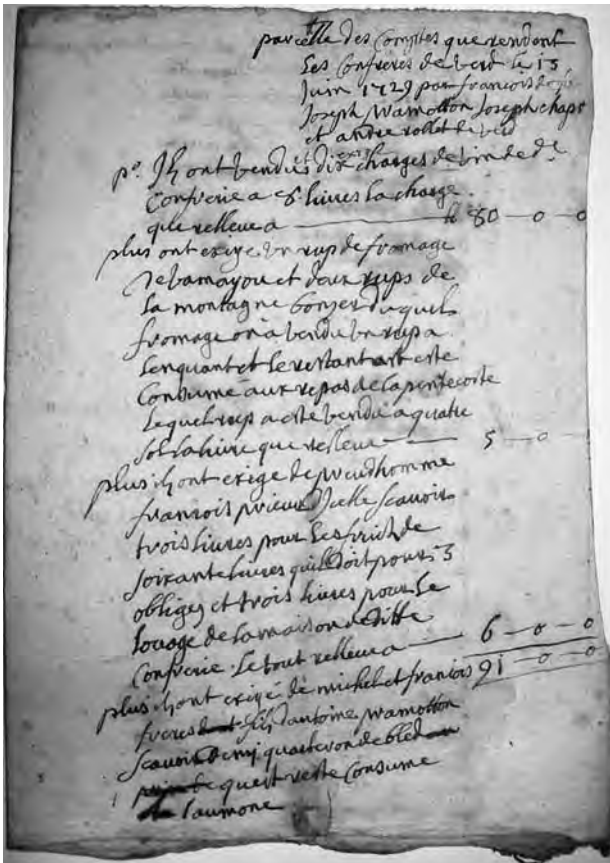 parcelle des Comptes que rendont
Les Confreres de verd le 15
Juin 1729 par francois
Joseph Wamotton Joseph chapt
et andre rollet de verd
po. Ils ont vendus dix charges de vin de de
Confrerie a 8 livres la charge
que relleve a ll 80 — 0 — 0
plus ont exige un rup de fromage
de et deux rups de
la montagne duquel
fromage on a vendu un rup a
lenquant et le restant at este
Consume aux repas de la pentecoste
Lequel rup a este vendu a quatre
sol la livre que relleve — 5 — 0
plus ils ont exige de preudhomme
francois prieur dicelle scavoir
trois livres pour les frict de
soixante livres quil doit pour 3
obliges et trois livres pour le
louage de la maison de ditte
Confrerie. Le tout relleve a — 6 — 0 — 0
plus ils ont exigé de michel et francois 91 — 0 — 0
freres fils dantoine wamotton
scavoir demj quarteron de bled
quest reste Consume
laumone